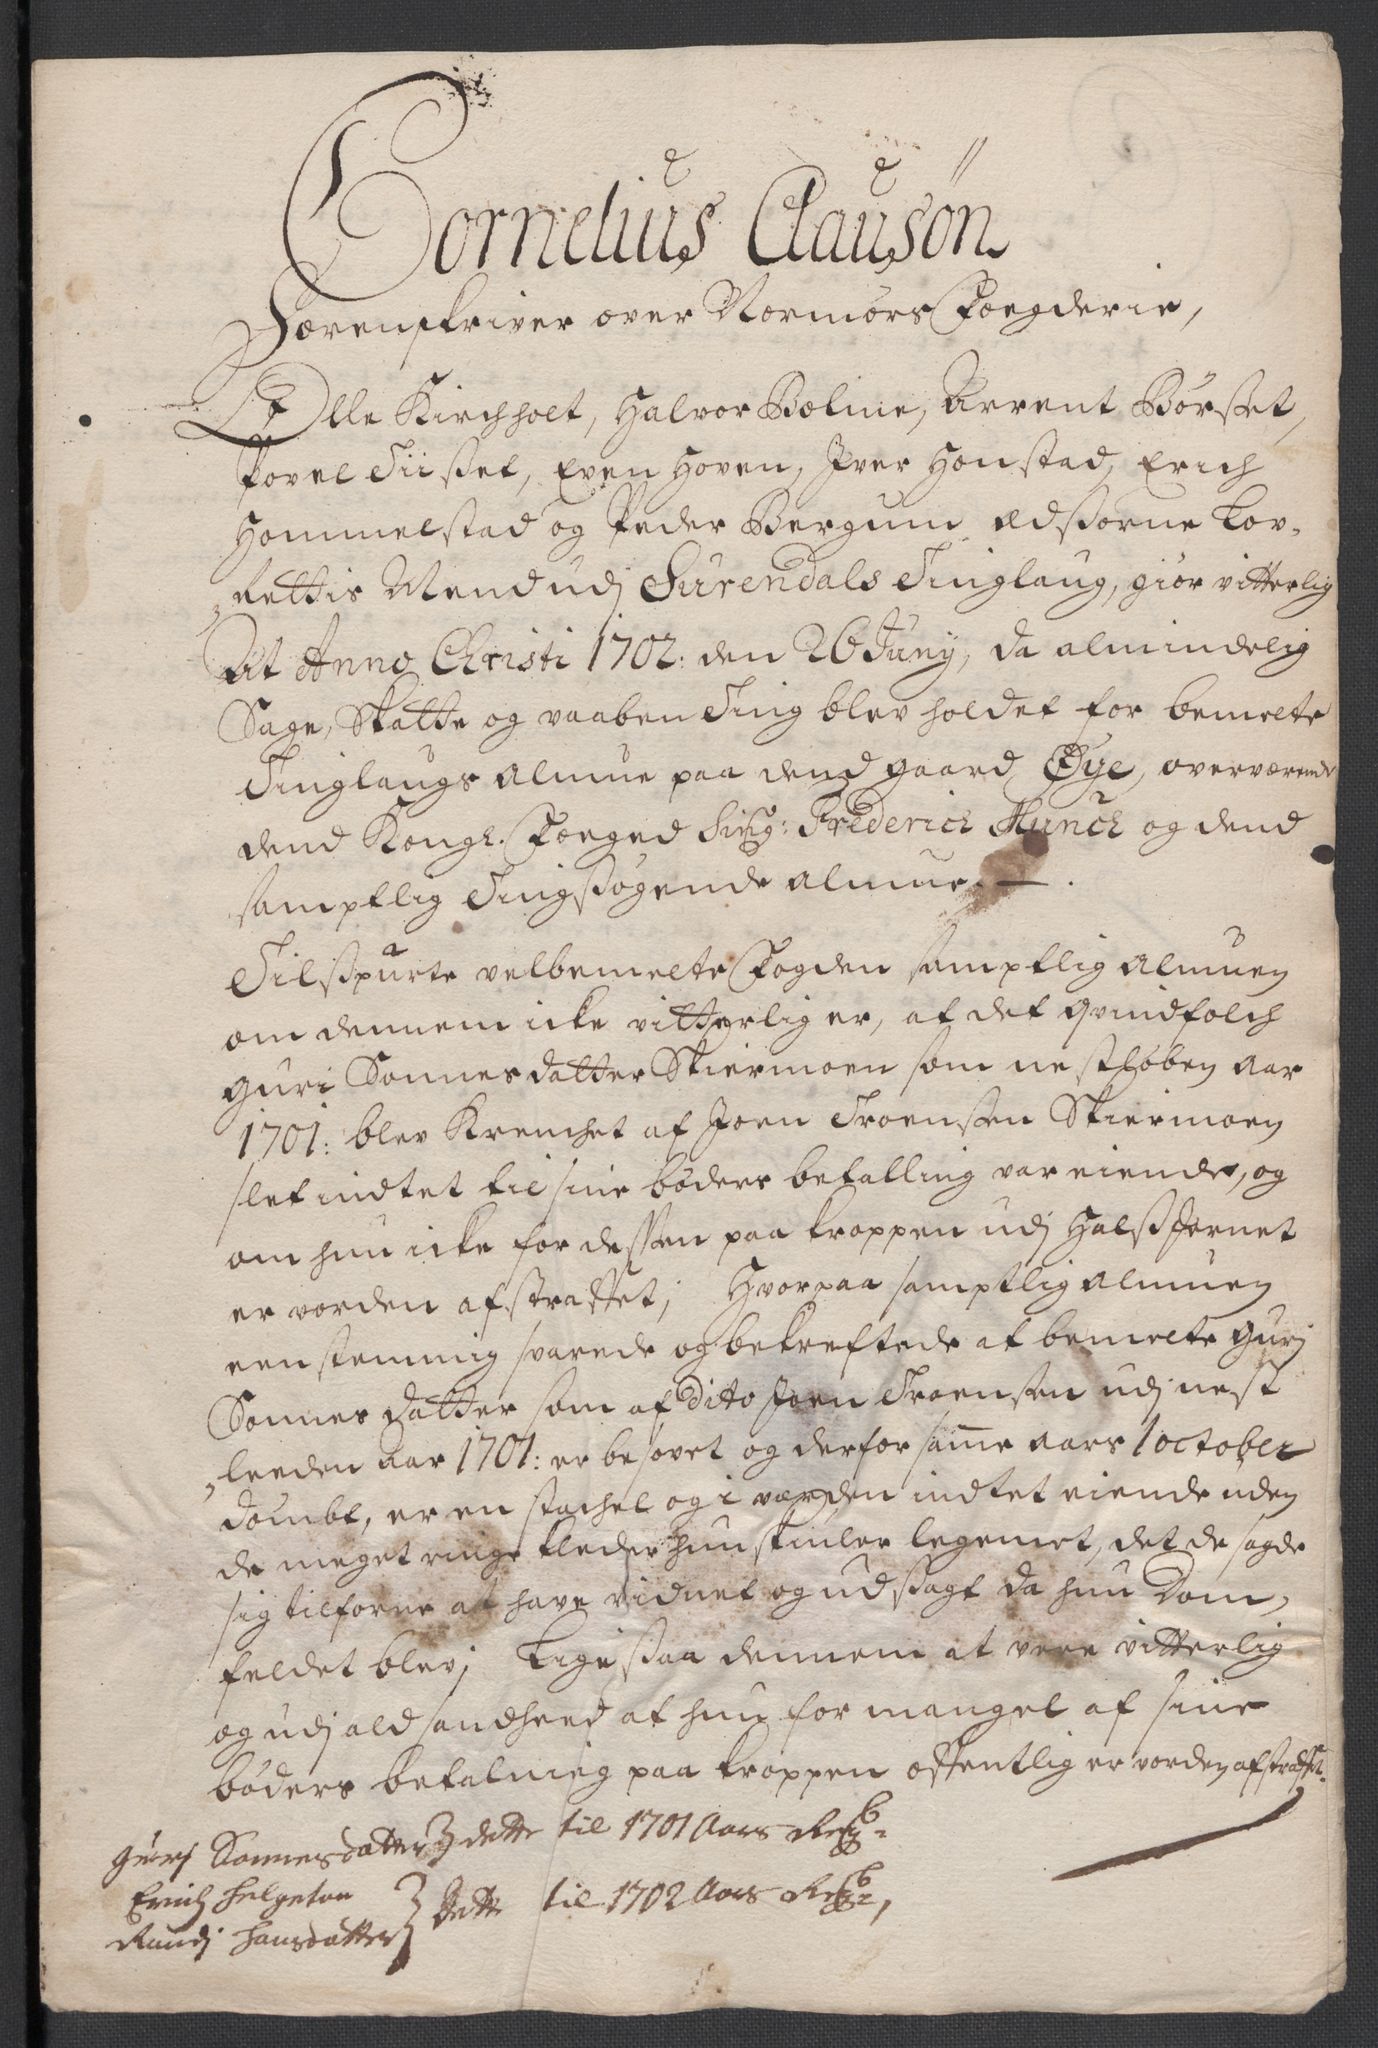 Cornelius Clausøn
Sorenskriver over Normørs Fogderie,
Olle Kirchholt, Halvor Bolme, Arrent Børset,
Povel Tiisset, Even Hoven, Iver Honstad, Erich
Hommelstad og Peder Bergum Edsorne Lov-
rettis Mend udj Surendals Tinglaug, giør vitterlig
At Anno Christi 1702: den 26 Junij, da almindelig
Sage, Skatte og vaaben Ting blev holdet for bemelte
Tinglaugs almue paa dend gaard Øye, overværende
dend Kongl. Foeged Sig: Frederich Munch og dend
samptlig Tingsøgende almue. —.
Tilspurte velbemelte Fogden samptlig almuen
om dennem icke vitterlig er, at det qvindfolch
Guri Sonnesdatter Skiermoen som nestløben aar
1701: blev Krenchet af Joen Troensen Skiermoen
slet indtet til sine bøders betalling var eiende, og
om hun icke for dessen paa kroppen udj Halsjernet
er vorden afstraffet; Hvorpaa samptlig almuen
eenstemmig svarede og bekreftede at bemelte Gurj
Sonnesdatter som af Dito Joen Troensen udj nest
leeden aar 1701: er besovet og derfor samme aars 1 october
dømbt, er en stachel og i verden indtet eiende uden
de meget ringe kleder hun skiuler legemet, det de sagde
sig tilforne at have vidnet og udsagt da hun Dom-
feldet blev; Ligesaa dennem at vere vitterlig
og udj ald sandheed at hun for mangel af sine
bøders betalning paa kroppen offentlig er vorden afstraffet.
Gurj Sonnesdatter } dette til 1701 Aars Regb:
Erich Helgeton
Randj Hansdatter } dette til 1702 Aars Regb:,